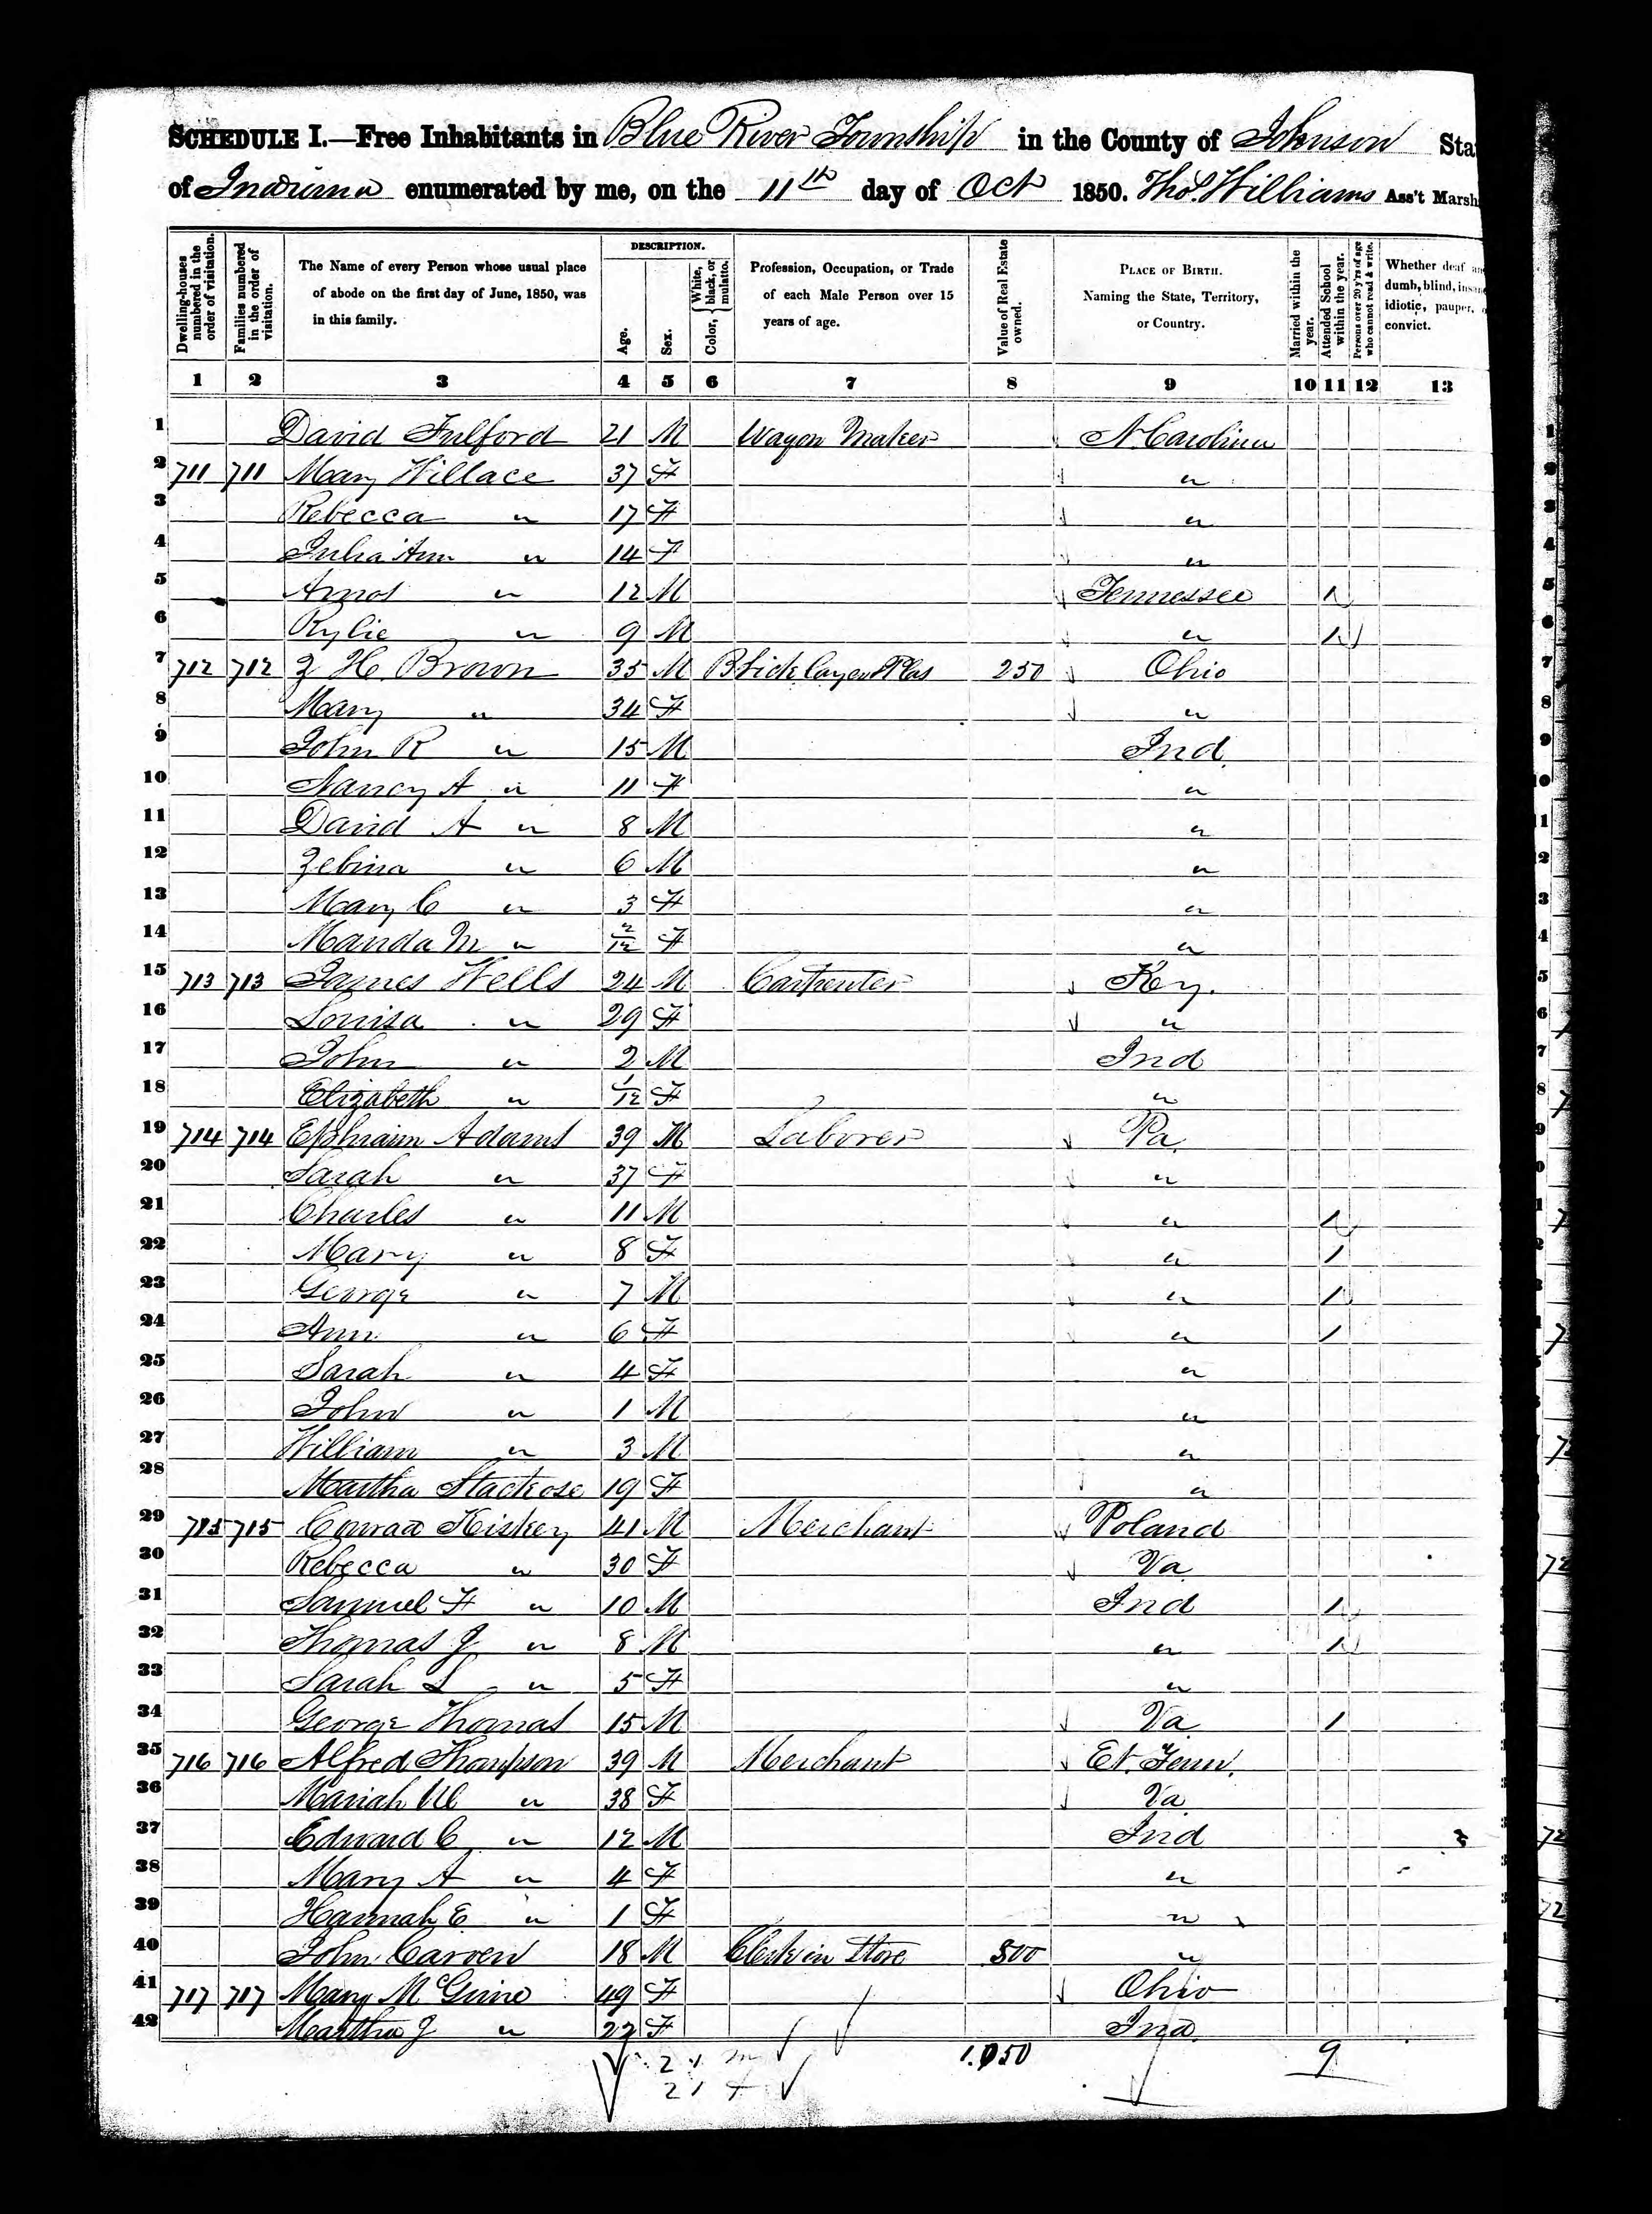 SCHEDULE I.—Free Inhabitants in Blue River Township in the County of Johnson Sta
of Indiana enumerated by me, on the 11th day of Oct 1850. Thos. Williams Ass't Marsh
Dwelling-houses numbered in the order of visitation.
Families numbered in the order of visitation.
The Name of every Person whose usual place of abode on the first day of June, 1850, was in this family.
DESCRIPTION.
Age.
Sex.
Color, { White, black, or mulatto.
Profession, Occupation, or Trade of each Male Person over 15 years of age.
Value of Real Estate owned.
PLACE OF BIRTH. Naming the State, Territory, or Country.
Married within the year.
Attended School within the year.
Persons over 20 y'rs of age who cannot read & write.
Whether deaf and dumb, blind, insane, idiotic, pauper, or convict.
1 2 3 4 5 6 7 8 9 10 11 12 13
1 David Fulford 21 M Wagon Maker N Carolina 1
2 711 711 Mary Willace 37 F " 2
3 Rebecca " 17 F " 3
4 Julia Ann " 14 F " 4
5 Amos " 12 M Tennessee 1 5
6 Rylie " 9 M " 1 6
7 712 712 Z H. Brown 35 M Brick layer & Plas 250 Ohio 7
8 Mary " 34 F " 8
9 John R " 15 M Ind. 9
10 Nancy A " 11 F " 10
11 David A " 8 M " 11
12 Zebina " 6 M " 12
13 Mary C " 3 F " 13
14 Manda M " 2/12 F " 14
15 713 713 James Wells 24 M Carpenter Key. 5
16 Louisa " 29 F " 6
17 John " 2 M Ind 7
18 Elizabeth " 1/12 F " 8
19 714 714 Ephraim Adams 39 M Laborer Pa. 9
20 Sarah " 37 F "
21 Charles " 11 M " 1
22 Mary " 8 F " 1
23 George " 7 M " 1
24 Ann " 6 F " 1
25 Sarah " 4 F "
26 John " 1 M "
27 William " 3 M "
28 Martha Stackose 19 F "
29 715 715 Conrad Kiskey 41 M Merchant Poland
30 Rebecca " 30 F Va.
31 Samuel F " 10 M Ind 1
32 Thomas J " 8 M " 1
33 Sarah L " 5 F "
34 George Thomas 15 M Va 1
35 716 716 Alfred Thompson 39 M Merchant Et. Tenn.
36 Mariah " 38 F Va.
37 Edward C " 12 M Ind
38 Mary A " 4 F "
39 Hannah E " 1 F "
40 John Carven 18 M Clerk in Store 800 "
41 717 717 Mary McGuire 49 F Ohio
42 Martha J " 22 F Ind.
21 m 1.050 9
21 f